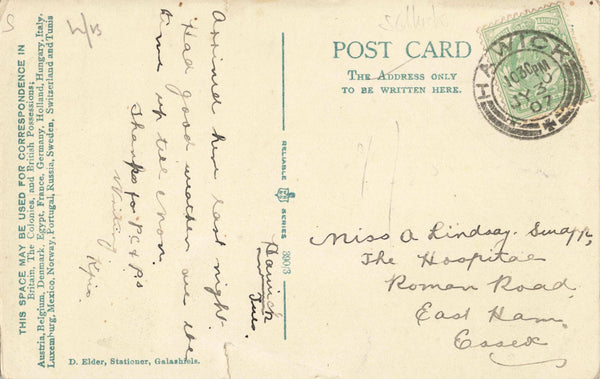 THIS SPACE MAY BE USED FOR CORRESPONDENCE IN
Britain, The Colonies, and British Possessions;
Austria, Belgium, Denmark, Egypt, France, Germany, Holland, Hungary, Italy,
Luxemburg, Mexico, Norway, Portugal, Russia, Sweden, Switzerland and Tunis
Hawick
Tues.
Arrived here last night.
Had good weather all the
time up till now.
Thanks for P.C & P.S
D. Elder, Stationer, Galashiels.
RELIABLE SERIES 390/3
POST CARD
THE ADDRESS ONLY
TO BE WRITTEN HERE.
HAWICK
10.30PM
JY 3
07
Miss A Lindsay.
The Hospital
Roman Road
East Ham
Essex